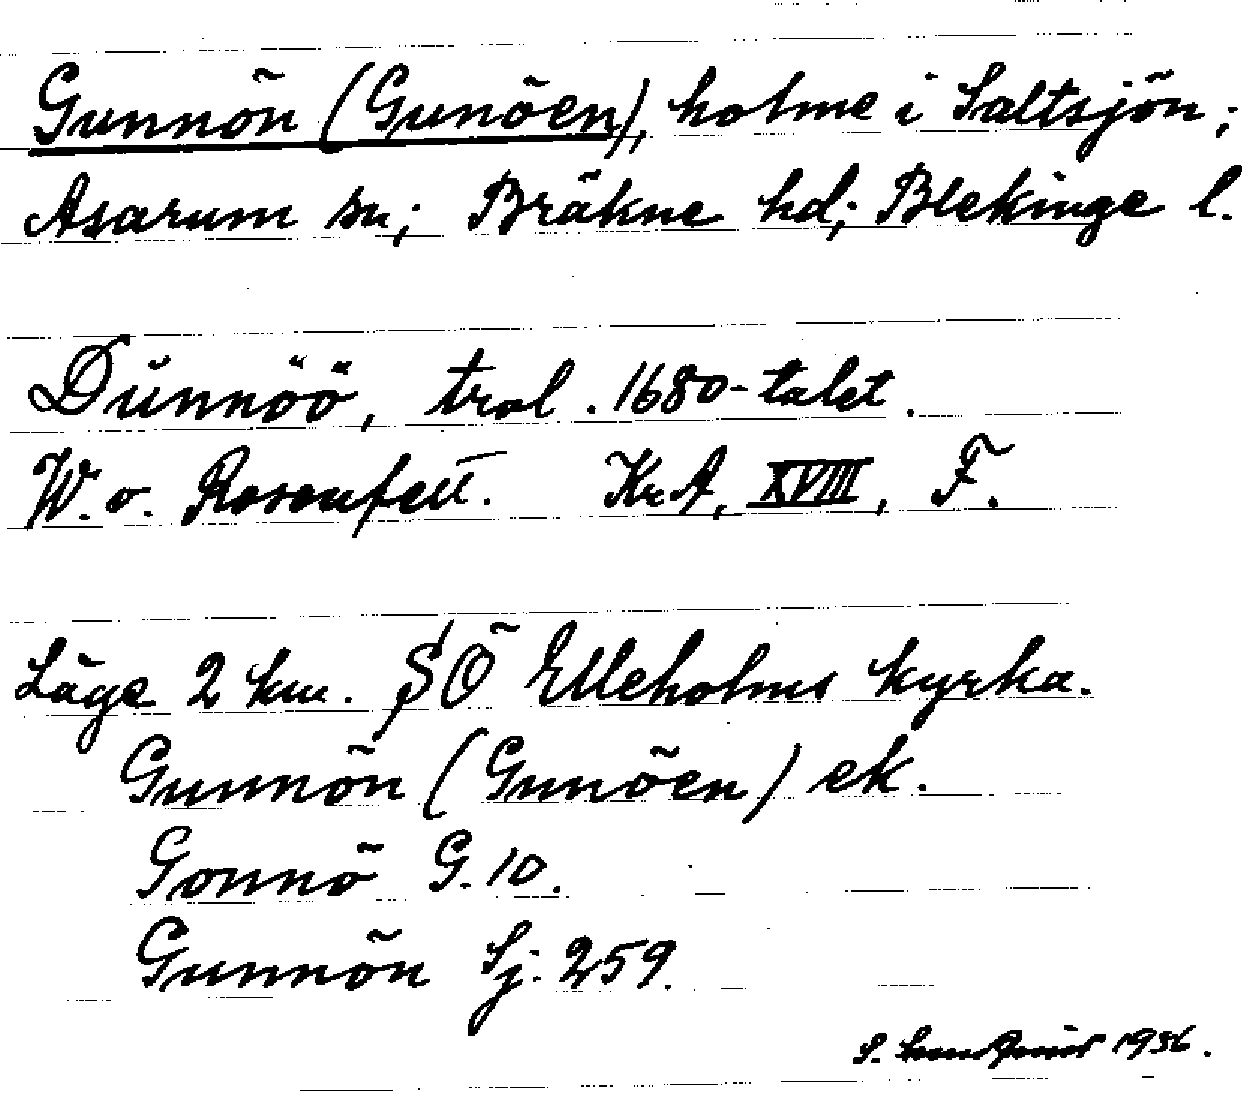 Gunnön (Gunöen), holme i Saltsjön;
Asarum sn; Bräkne hd; Blekinge l.
Dunnöö, trol. 1680-talet.
W. v. Rosenfelt. KrA, XVIII, F.
Läge 2 km. SÖ Elleholms kyrka.
Gunnön (Gunöen) ek.
Gonnö G. 10.
Gunnön Sj. 259.
S. 1936.